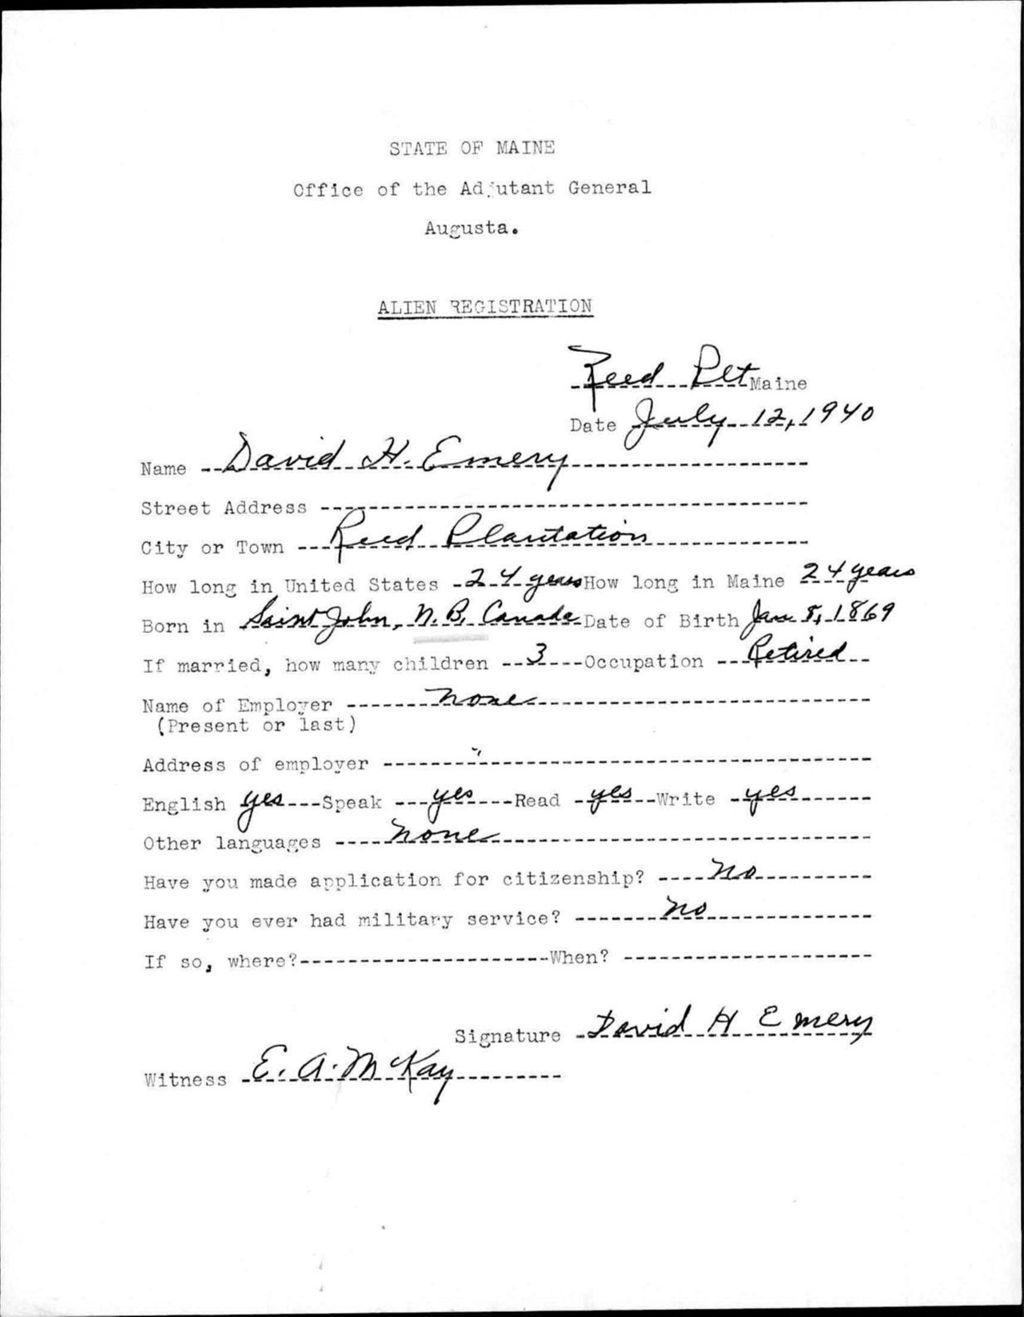 STATE OF MAINE
Office of the Adjutant General
Augusta.
ALIEN REGISTRATION
Reed Plt Maine
Date July 12, 1940
Name David H. Emery
Street Address
City or Town Reed Plantation
How long in United States 24 years How long in Maine 24 years
Born in Saint John, N.B, Canada Date of Birth Jan 8, 1869
If married, how many children 3 Occupation Retired
Name of Employer none
(Present or last)
Address of employer "
English yes Speak yes Read yes Write yes
Other languages none
Have you made application for citizenship? No
Have you ever had military service? no
If so, where? When?
Signature David H Emery
Witness E. A. McKay